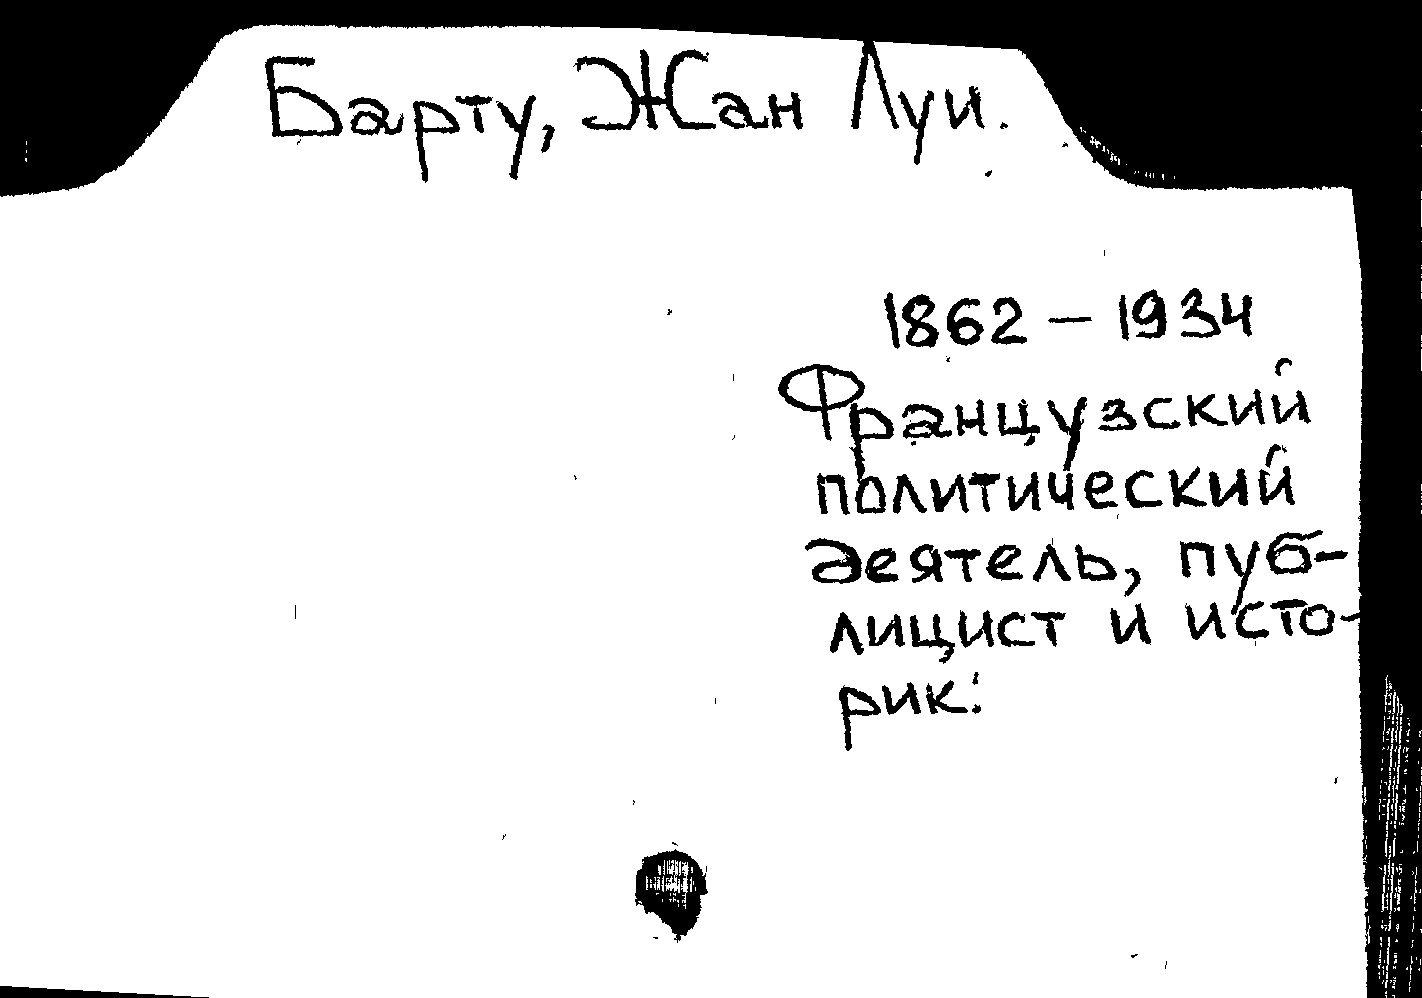 Барту, Жан Луи.
1862 – 1934
Французский
политический
деятель, пуб-
лицист и исто-
рик.